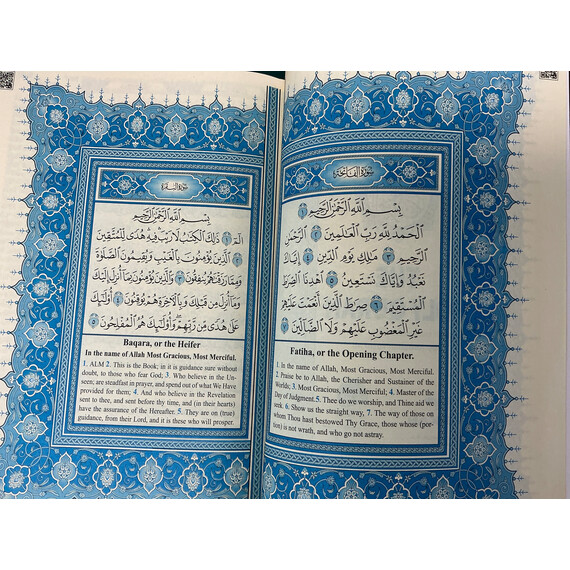 سُورَةُ الْفَاتِحَةِ
بِسْمِ اللَّهِ الرَّحْمَٰنِ الرَّحِيمِ ١
الْحَمْدُ لِلَّهِ رَبِّ الْعَالَمِينَ ٢ الرَّحْمَٰنِ
الرَّحِيمِ ٣ مَٰلِكِ يَوْمِ الدِّينِ ٤ إِيَّاكَ
نَعْبُدُ وَإِيَّاكَ نَسْتَعِينُ ٥ اهْدِنَا الصِّرَٰطَ
الْمُسْتَقِيمَ ٦ صِرَٰطَ الَّذِينَ أَنْعَمْتَ عَلَيْهِمْ
غَيْرِ الْمَغْضُوبِ عَلَيْهِمْ وَلَا الضَّالِّينَ ٧
Fatiha, or the Opening Chapter.
1. In the name of Allah, Most Gracious, Most Merciful.
2. Praise be to Allah, the Cherisher and Sustainer of the
Worlds; 3. Most Gracious, Most Merciful; 4. Master of the
Day of Judgment. 5. Thee do we worship, and Thine aid we
seek. 6. Show us the straight way, 7. The way of those on
whom Thou hast bestowed Thy Grace, those whose (por-
tion) is not wrath, and who go not astray.
سُورَةُ الْبَقَرَةِ
بِسْمِ اللَّهِ الرَّحْمَٰنِ الرَّحِيمِ
الٓمٓ ١ ذَٰلِكَ الْكِتَٰبُ لَا رَيْبَ فِيهِ هُدًى لِّلْمُتَّقِينَ
٢ الَّذِينَ يُؤْمِنُونَ بِالْغَيْبِ وَيُقِيمُونَ الصَّلَوٰةَ
وَمِمَّا رَزَقْنَٰهُمْ يُنفِقُونَ ٣ وَالَّذِينَ يُؤْمِنُونَ بِمَا أُنزِلَ إِلَيْكَ
وَمَا أُنزِلَ مِن قَبْلِكَ وَبِالْآخِرَةِ هُمْ يُوقِنُونَ ٤ أُولَٰئِكَ
عَلَىٰ هُدًى مِّن رَّبِّهِمْ وَأُولَٰئِكَ هُمُ الْمُفْلِحُونَ ٥
Baqara, or the Heifer
In the name of Allah Most Gracious, Most Merciful.
1. ALM 2. This is the Book; in it is guidance sure without
doubt, to those who fear God; 3. Who believe in the Un-
seen; are steadfast in prayer, and spend out of what We have
provided for them; 4. And who believe in the Revelation
sent to thee, and sent before thy time, and (in their hearts)
have the assurance of the Hereafter. 5. They are on (true)
guidance, from their Lord, and it is these who will prosper.